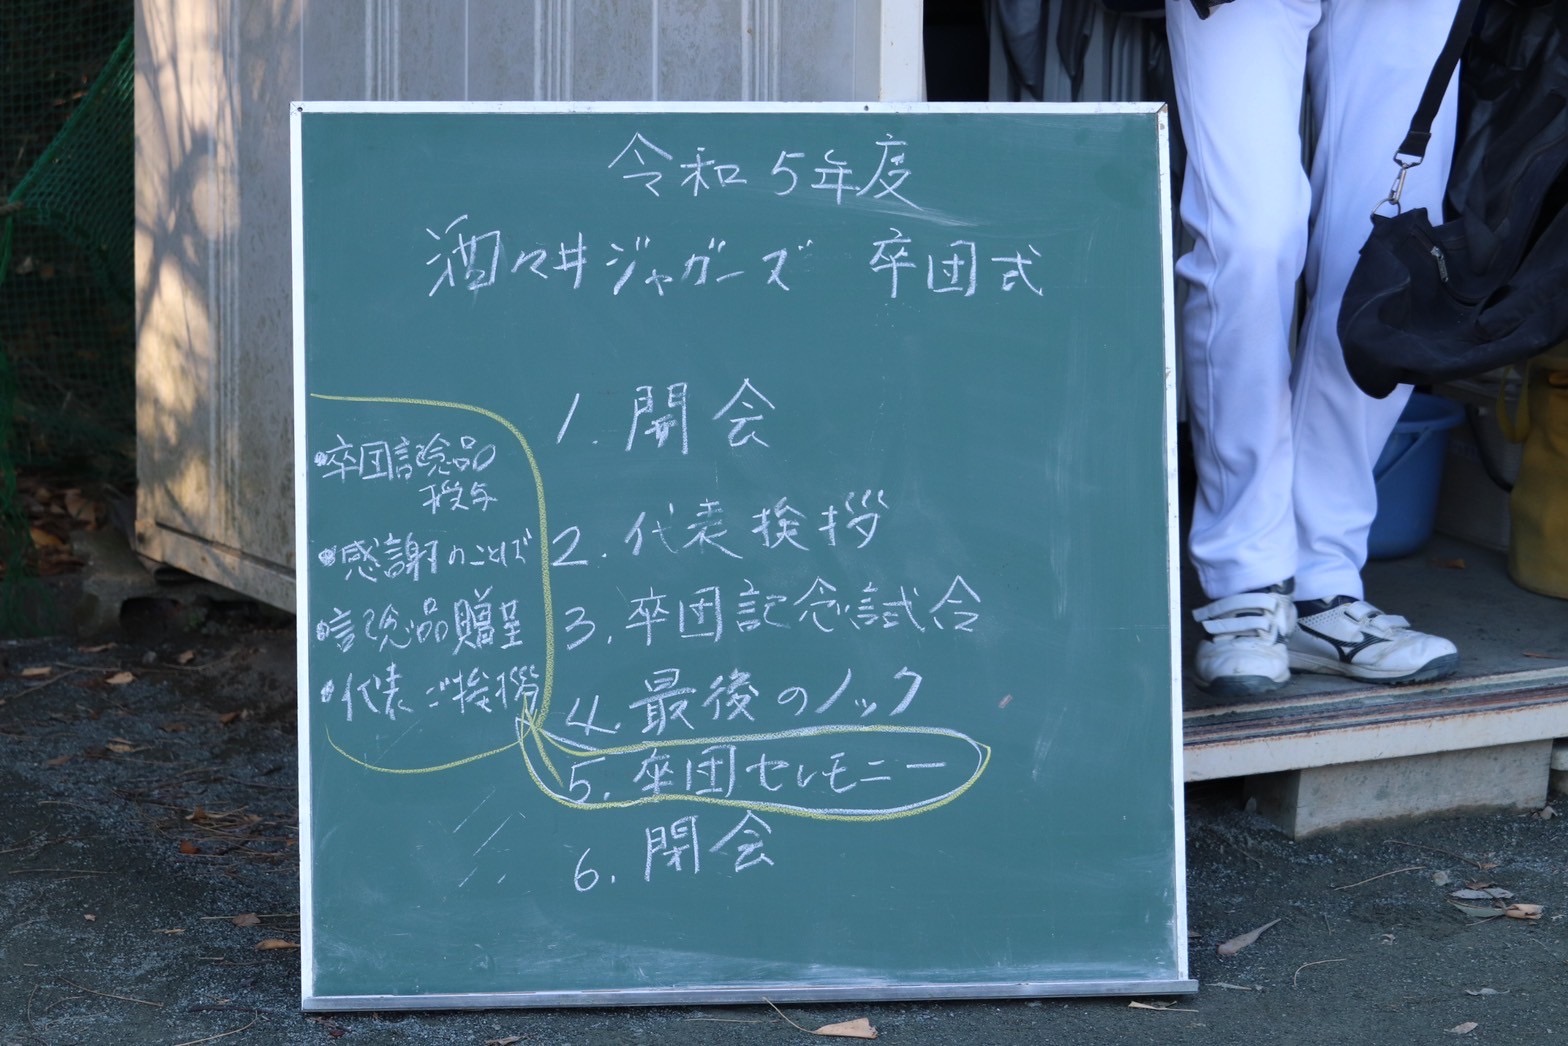 令和5年度
酒々井ジャガーズ 卒団式
1. 開会
2. 代表挨拶
3. 卒団記念試合
4. 最後のノック
5. 卒団セレモニー
6. 閉会
•卒団記念品の
授与
•感謝のことば
•記念品贈呈
•代表ご挨拶